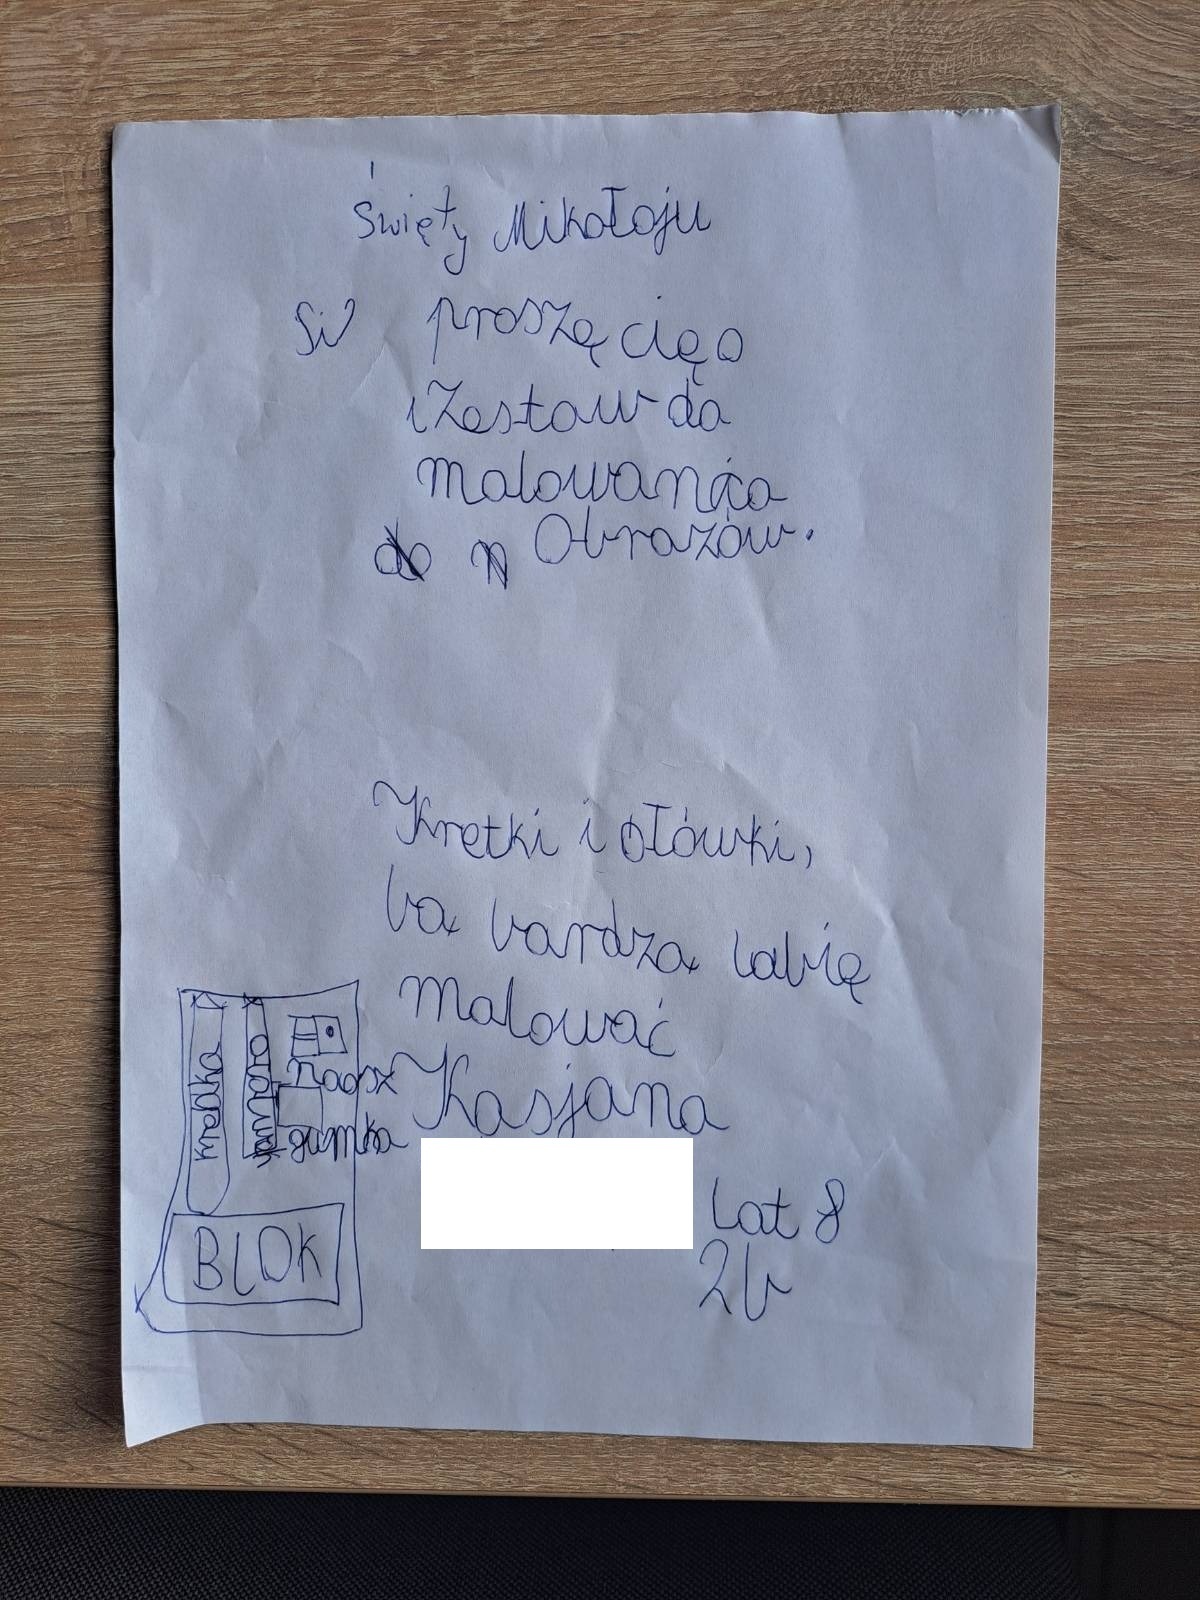 Święty Mikołaju
proszę cię o
Zestaw do
malowania
Obrazów.
Kretki i ołówki,
bo bardzo lobię
malować
Kasjana
kredka
ołówek
nadsz
gumka
BLOK
Lat 8
2b